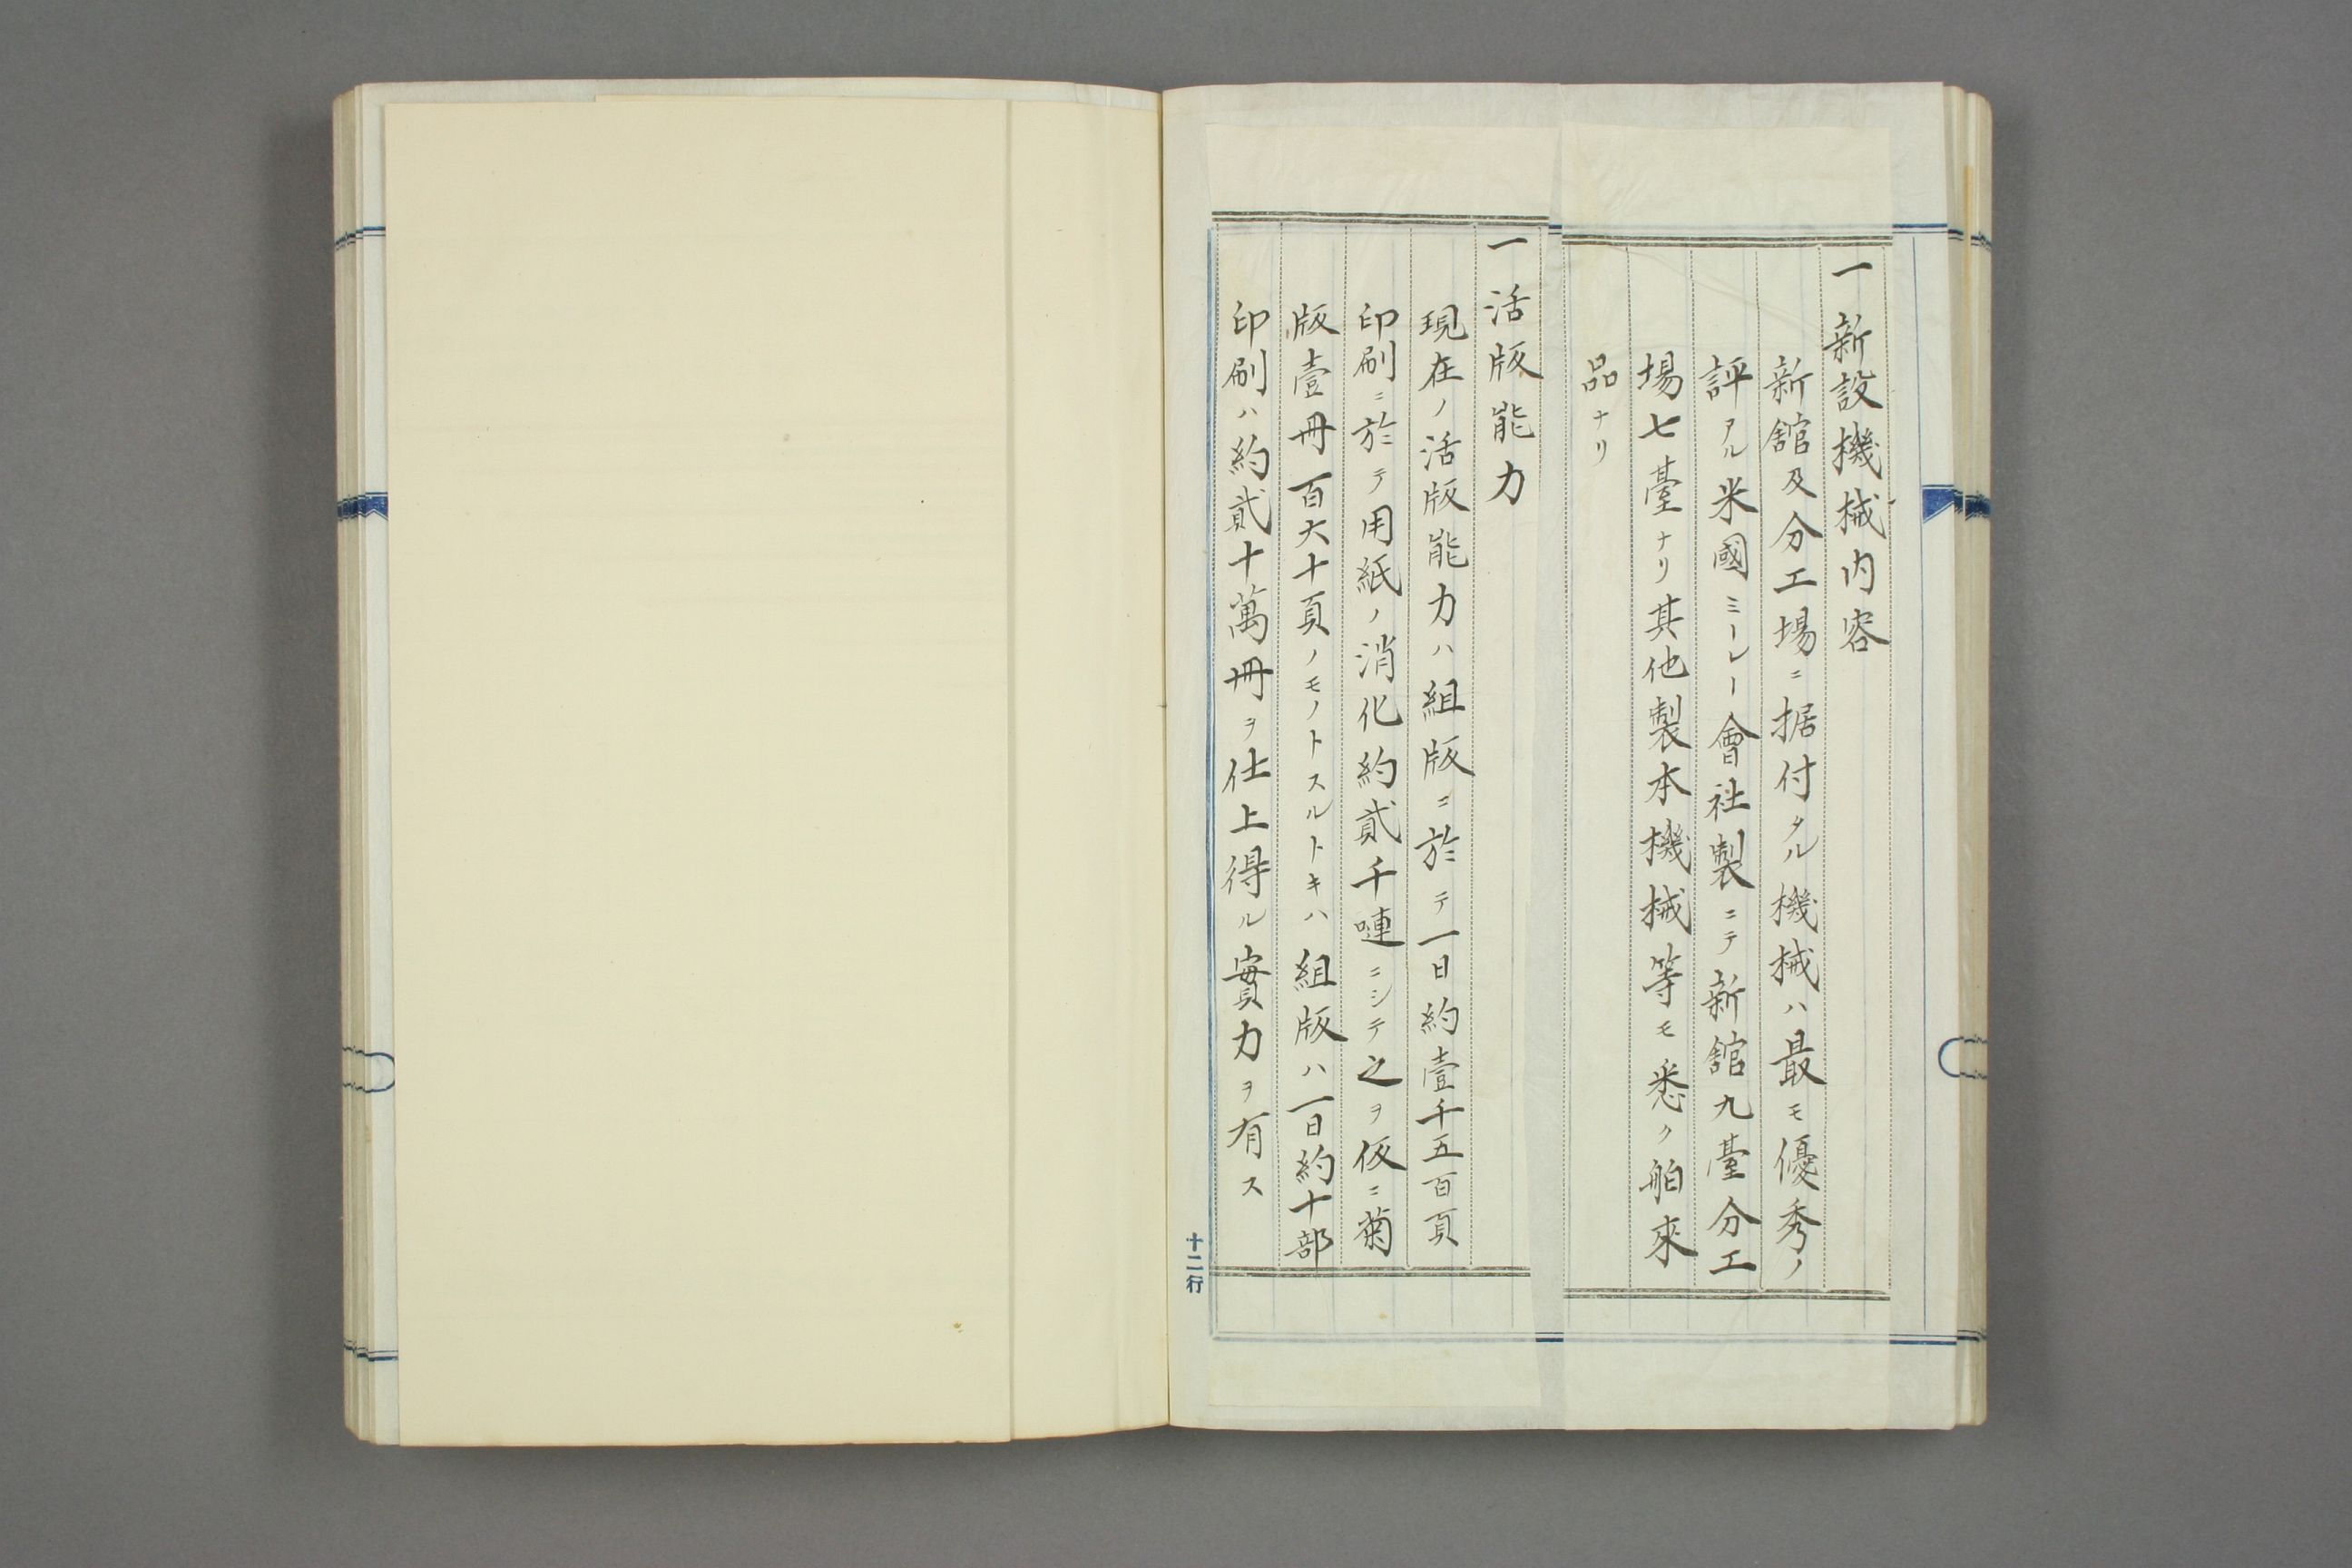 一新設機械内容
新舘及分工場ニ据付タル機械ハ最モ優秀ノ
評アル米國ミーレー會社製ニテ新舘九臺分工
場七臺ナリ其他製本機械等モ悉ク舶來
品ナリ
一活版能力
現在ノ活版能力ハ組版ニ於テ一日約壹千五百頁
印刷ニ於テ用紙ノ消化約貳千嗹ニシテ之ヲ仮ニ菊
版壹冊百六十頁ノモノトスルトキハ組版ハ一日約十部
印刷ハ約貳十萬冊ヲ仕上得ル實力ヲ有ス
十二行